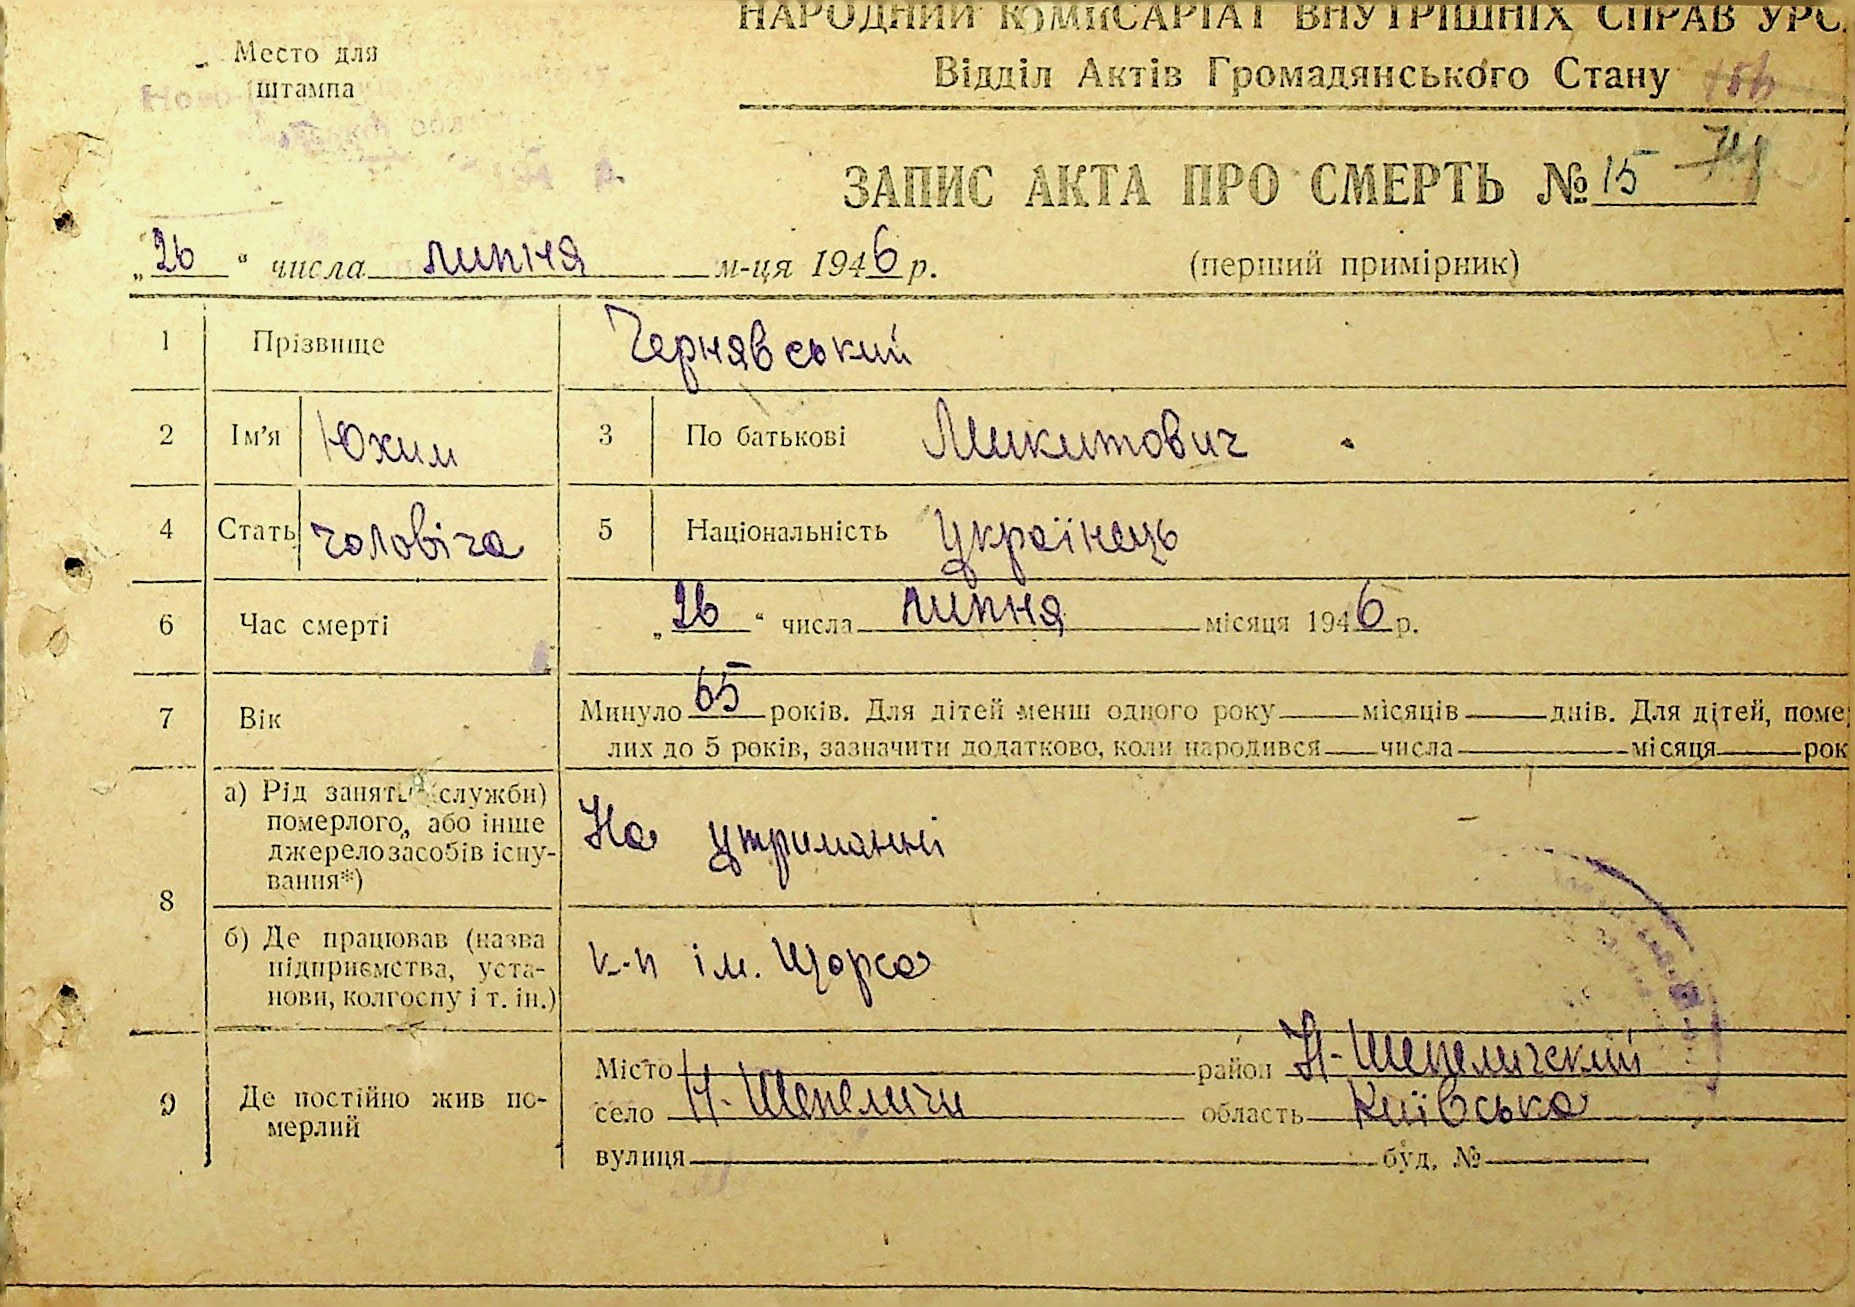 НАРОДНИЙ КОМІСАРІАТ ВНУТРІШНІХ СПРАВ УРС
Место для
штампа
Відділ Актів Громадянського Стану
ЗАПИС АКТА ПРО СМЕРТЬ № 15
„26“ числа липня м-ця 1946 р.
(перший примірник)
1 Прізвище Чернявський
2 Ім'я Юхим 3 По батькові Микитович
4 Стать чоловіча 5 Національність Українець
6 Час смерті „26“ числа липня місяця 1946 р.
7 Вік Минуло 65 років. Для дітей менш одного року місяців днів. Для дітей, поме
лих до 5 років, зазначити додатково, коли народився числа місяця рок
8 а) Рід занять (служби)
померлого, або інше
джерело засобів існу-
вання*)
На утриманні
б) Де працював (назва
підприємства, уста-
нови, колгоспу і т. ін.)
к-п ім. Щорса
9 Де постійно жив по-
мерлий
Місто район Н-Шепеличский
село Н-Шепеличи область Київська
вулиця буд. №